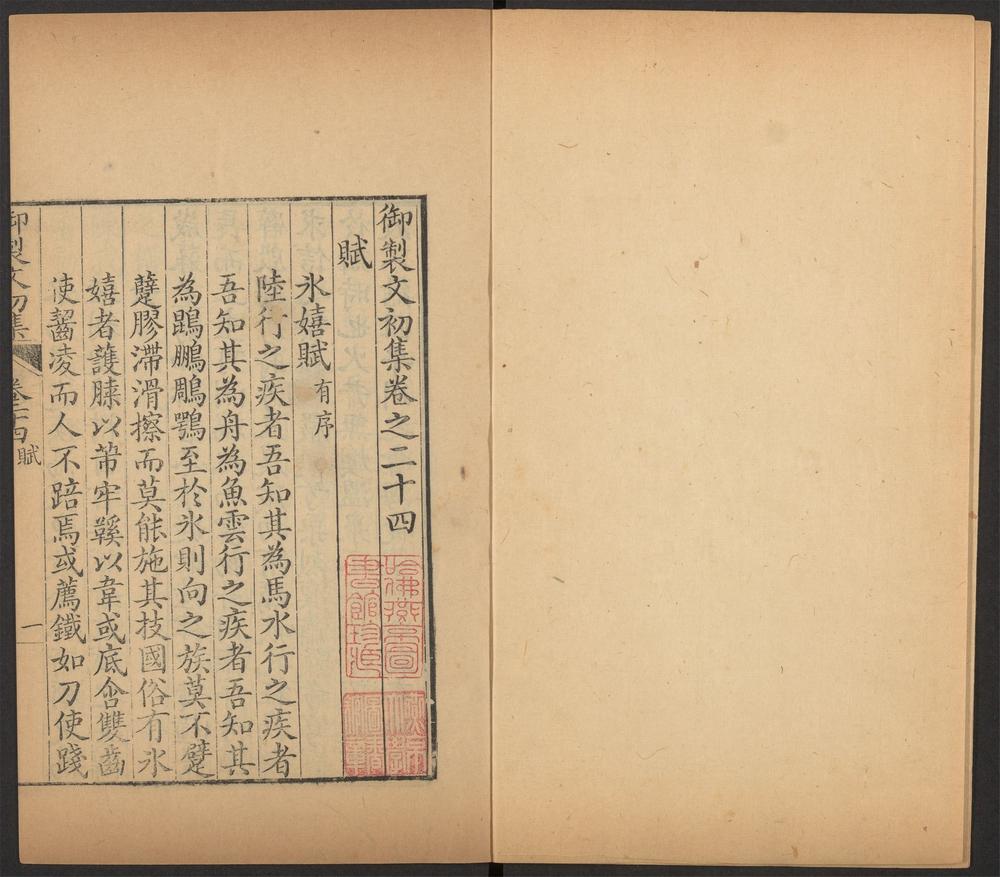 御製文初集卷之二十四
賦
氷嬉賦 有序
陸行之疾者吾知其為馬水行之疾者
吾知其為舟為魚雲行之疾者吾知其
為鵾鵬鵰鶚至於氷則向之族莫不躄
躠膠滯滑擦而莫能施其技國俗有氷
嬉者護膝以芾牢鞵以韋或底含雙齒
使齧凌而人不踣焉或薦鐵如刀使踐
御製文初集 卷二十四 賦 一
哈佛燕京圖書館珍藏